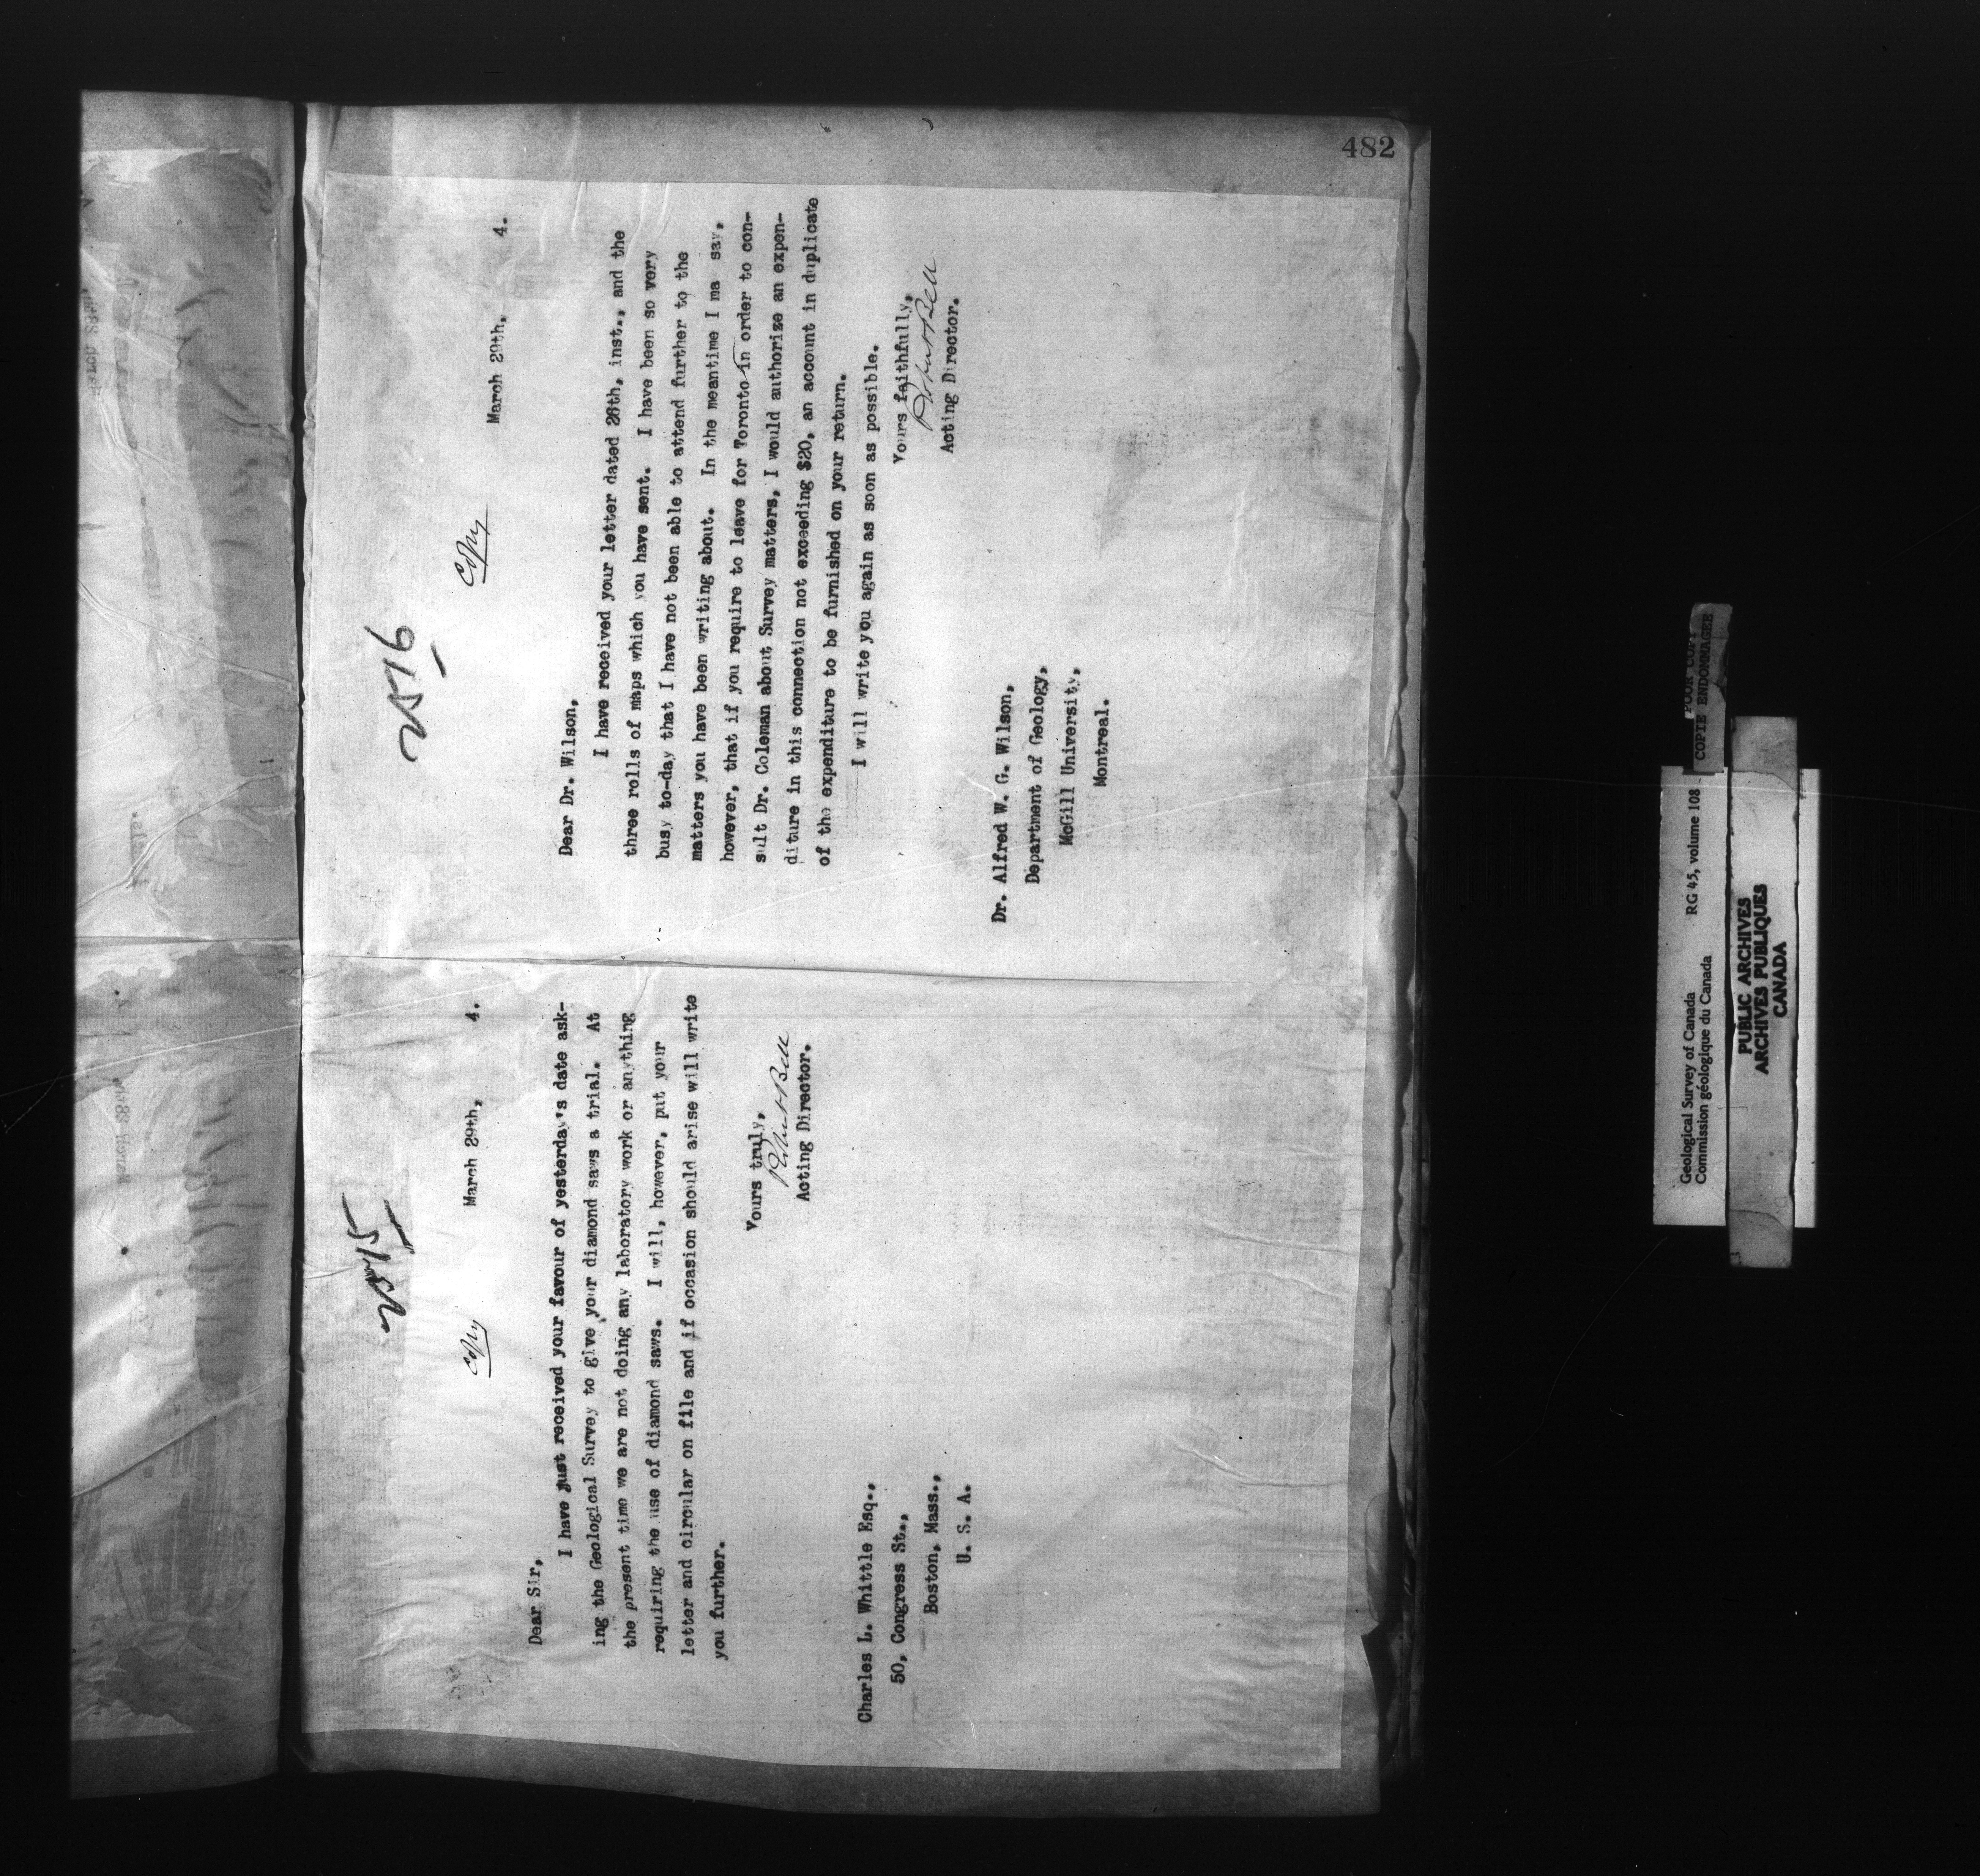 482
2515
Copy
March 29th, 4.
Dear Sir,
I have just received your favour of yesterday's date ask-
ing the Geological Survey to give your diamond saws a trial. At
the present time we are not doing any laboratory work or anything
requiring the use of diamond saws. I will, however, put your
letter and circular on file and if occasion should arise will write
you further.
Yours truly,
Robert Bell
Acting Director.
Charles L. Whittle Esq.,
50, Congress St.,
Boston, Mass.,
U. S. A.
2516
Copy
March 29th, 4.
Dear Dr. Wilson,
I have received your letter dated 26th, inst., and the
three rolls of maps which you have sent. I have been so very
busy to-day that I have not been able to attend further to the
matters you have been writing about. In the meantime I ma say,
however, that if you require to leave for Toronto in order to con-
sult Dr. Coleman about Survey matters, I would authorize an expen-
diture in this connection not exceeding $20, an account in duplicate
of the expenditure to be furnished on your return.
I will write you again as soon as possible.
Yours faithfully,
Robert Bell
Acting Director.
Dr. Alfred W. G. Wilson,
Department of Geology,
McGill University,
Montreal.
Geological Survey of Canada RG 45, volume 108
Commission géologique du Canada
POOR COPY
COPIE ENDOMMAGEE
PUBLIC ARCHIVES
ARCHIVES PUBLIQUES
CANADA